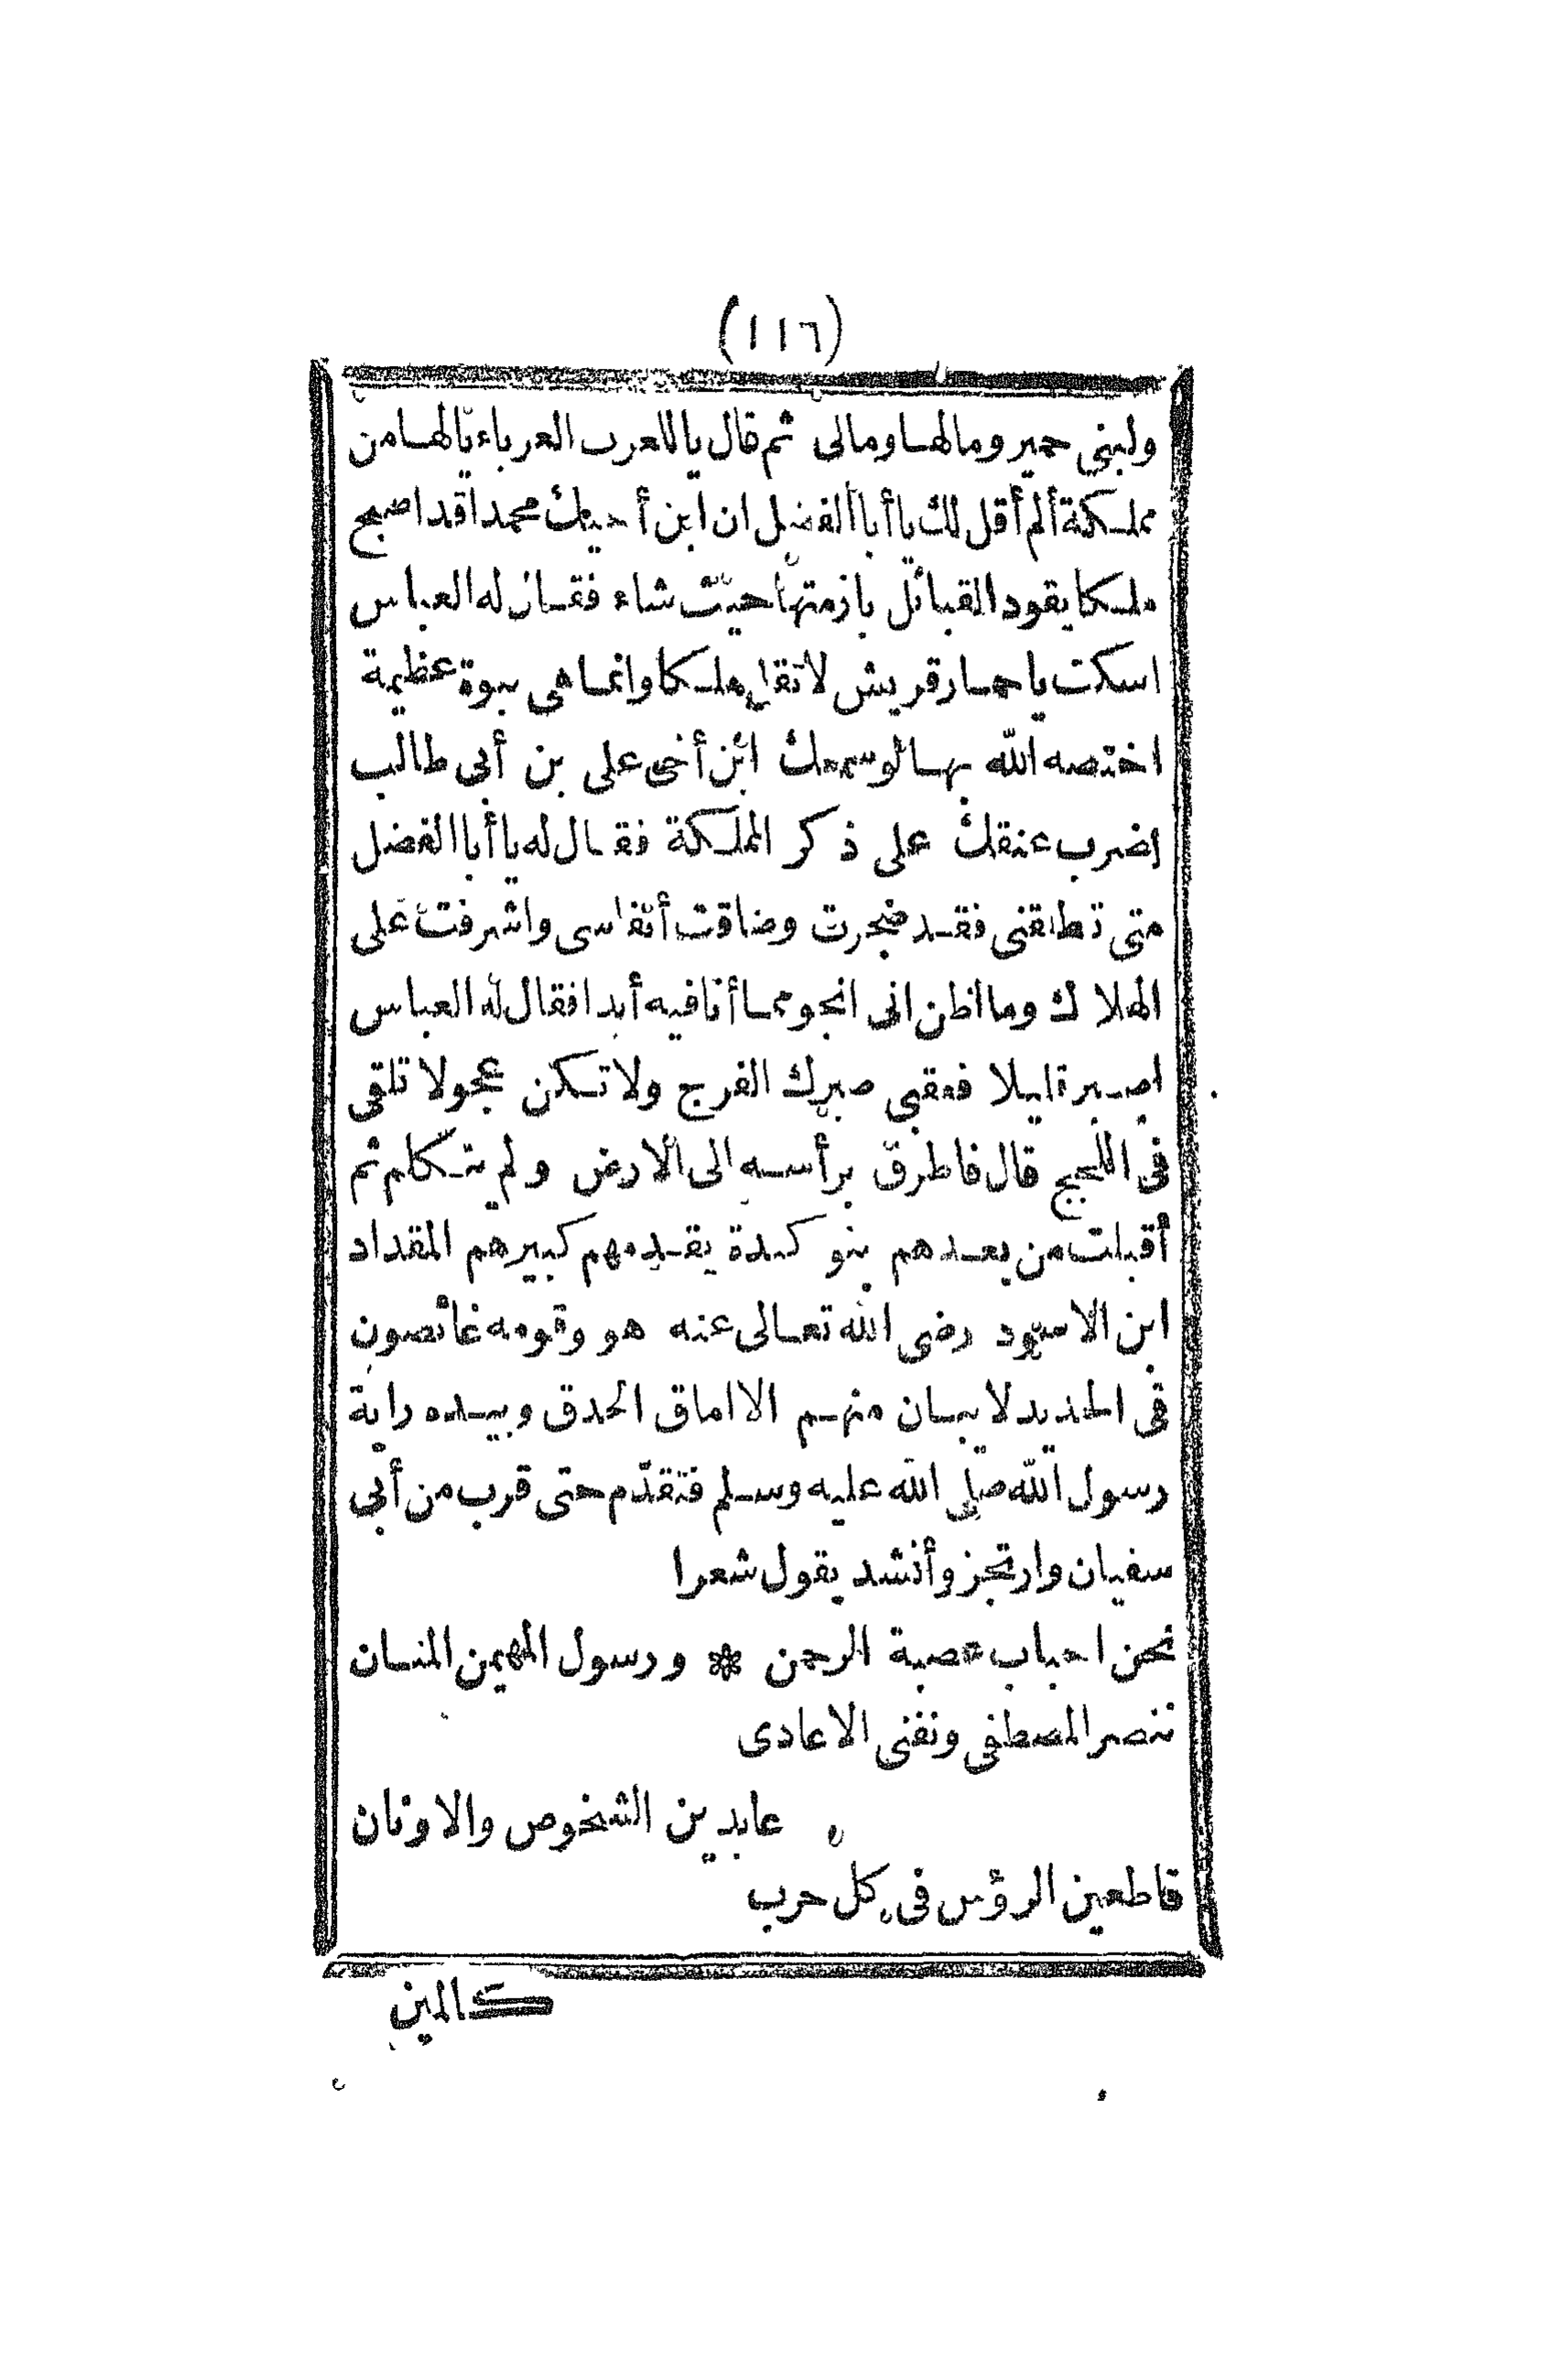 (١١٦)
ولبنى حمير ومالها ومالى ثم قال ياللعرب العرباء يالها من
مملكة ألم أقل لك يا أبا الفضل ان ابن أخيك محمدا قد اصبح
ملكا يقود القبائل بازمتها حيث شاء فقال له العباس
اسكت يا حمار قريش لا تقل ملكا وانما هى نبوة عظيمة
اختصه الله بها لو سمعك ابن أخى على بن أبى طالب
اضرب عنقك على ذكر المملكة فقال له يا أبا الفضل
متى تطلقنى فقد ضجرت وضاقت أنفاسى واشرفت على
الهلاك وما اظن انى انجو مما أنا فيه أبدا فقال له العباس
اصبر قليلا فعقبى صبرك الفرج ولا تكن عجولا تلقى
فى اللجج قال فاطرق برأسه الى الارض ولم يتكلم ثم
أقبلت من بعدهم بنو كندة يقدمهم كبيرهم المقداد
ابن الاسود رضى الله تعالى عنه هو وقومه غائصون
فى الحديد لا يبان منهم الا اماق الحدق وبيده راية
رسول الله صلى الله عليه وسلم فتقدّم حتى قرب من أبى
سفيان وارتجز وأنشد يقول شعرا
نحن احباب عصبة الرحمن * ورسول المهيمن المنان
ننصر المصطفى ونفنى الاعادى
عابدين الشخوص والاوثان
قاطعين الرؤس فى كل حرب
كالمين